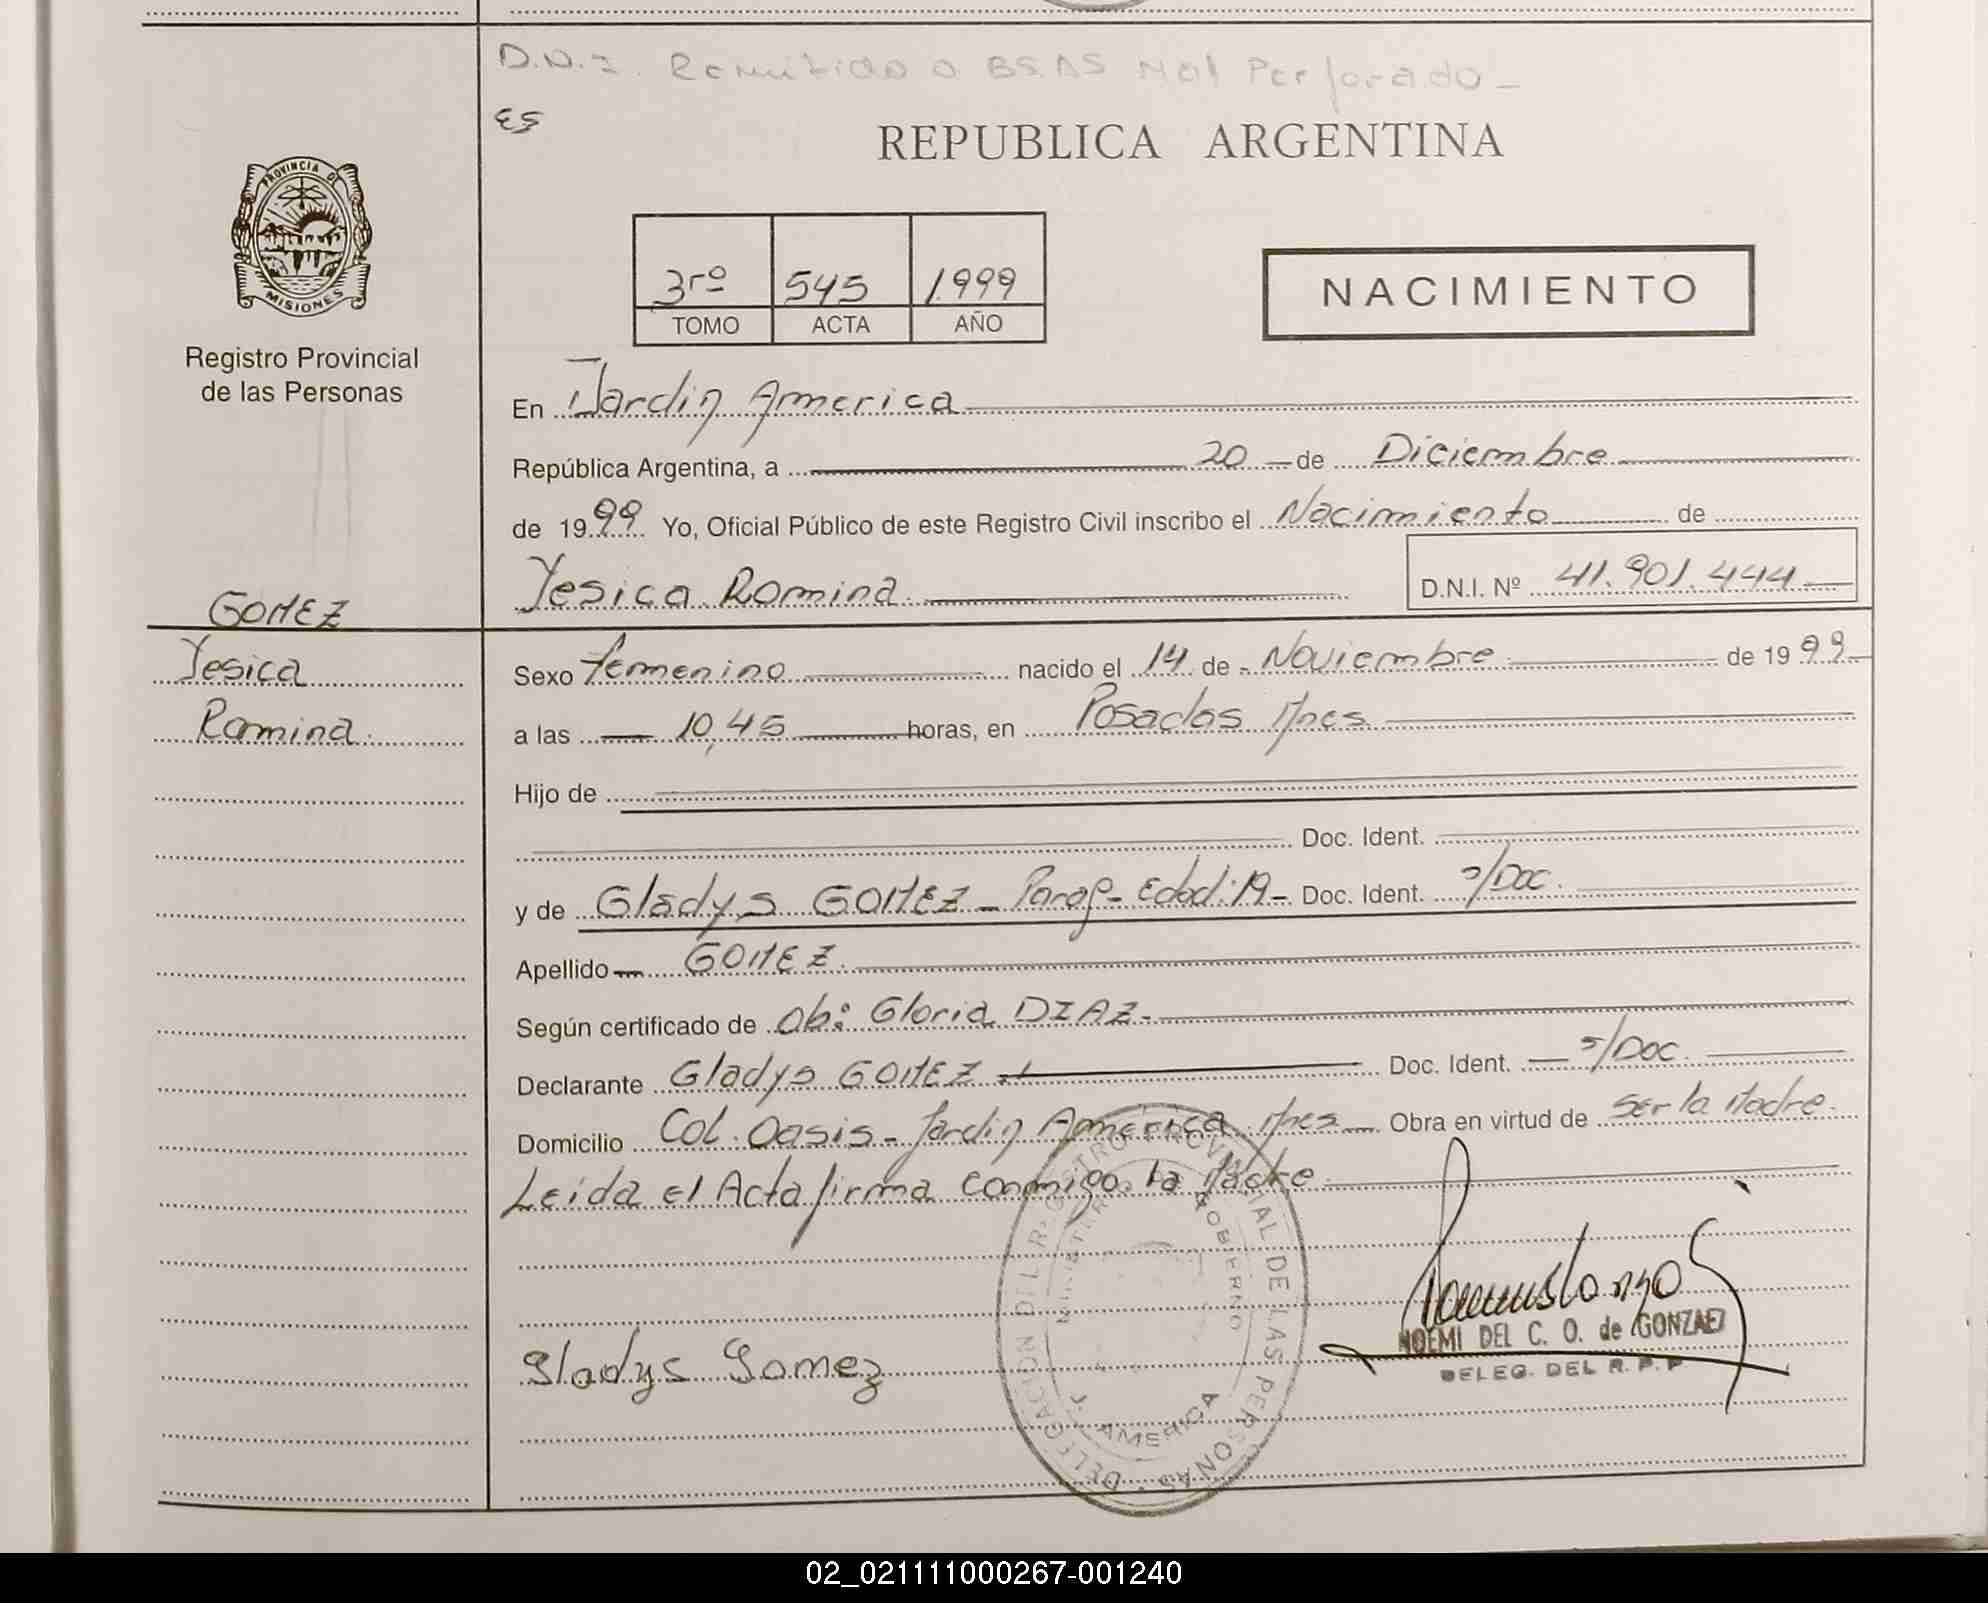 D.N.I. Remitido a BS.AS Mal Perforado -
ES
REPUBLICA ARGENTINA
PROVINCIA DE MISIONES
3ro 545 1999
TOMO ACTA AÑO
NACIMIENTO
Registro Provincial
de las Personas
En Jardin America
República Argentina, a 20 de Diciembre
de 1999 Yo, Oficial Público de este Registro Civil inscribo el Nacimiento de
Yesica Romina D.N.I. Nº 41.901.444
GOMEZ
Yesica
Romina
Sexo femenino nacido el 14 de Noviembre de 1999
a las 10,45 horas, en Posadas Mnes
Hijo de
Doc. Ident.
y de Gladys GOMEZ - Parag- Edad: 19 - Doc. Ident. s/Doc.
Apellido GOMEZ.
Según certificado de Ob: Gloria DIAZ.-
Declarante Gladys GOMEZ Doc. Ident. s/Doc.
Domicilio Col. Oasis - Jardin America Mnes Obra en virtud de Ser la Madre.
Leida el Acta firma conmigo la Madre
Gladys Gomez
DELEGACION DEL REGISTRO PROVINCIAL DE LAS PERSONAS
MINISTERIO GOBIERNO
J. AMERICA
NOEMI DEL C. O. de GONZAEZ
DELEG. DEL R. P. P
02_021111000267-001240